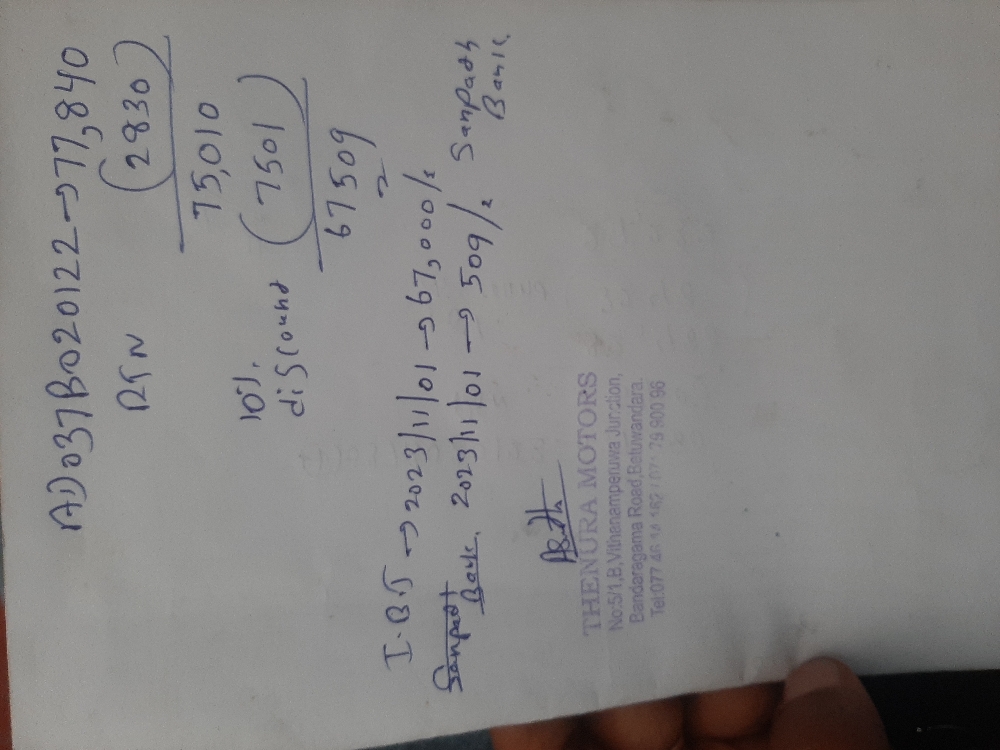 AD037B020122 → 77,840
RTN (2830)
75,010
10%. discount (7501)
67509
I.B.T → 2023/11/01 → 67,000/=
Sampath Bank. 2023/11/01 → 509/= Sanpath Bank
THENURA MOTORS
No:5/1,B,Vithanamperuwa Junction,
Bandaragama Road,Batuwandara.
Tel:077